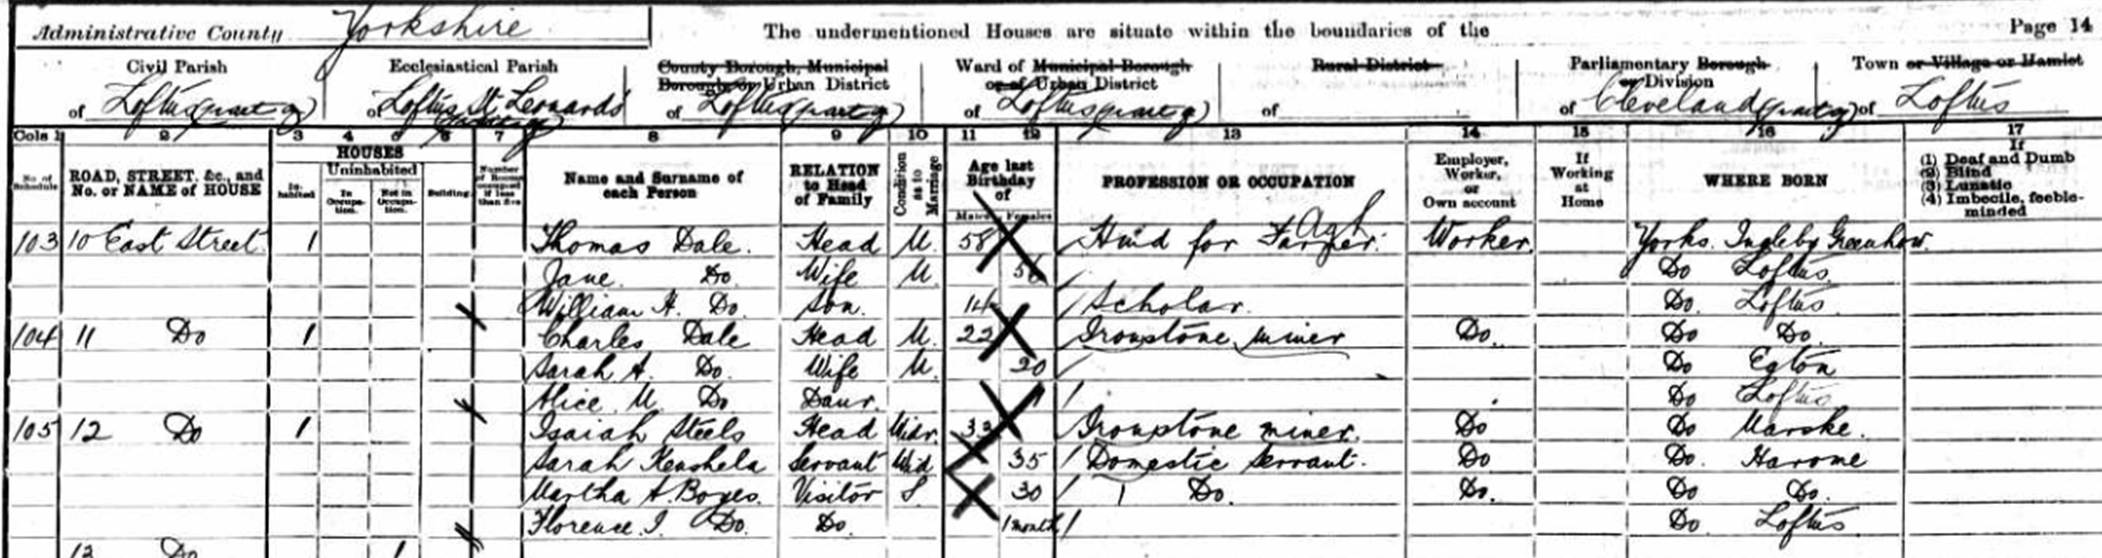 Administrative County Yorkshire The undermentioned Houses are situate within the boundaries of the Page 14
Civil Parish Ecclesiastical Parish County Borough, Municipal Borough or Urban District Ward of Municipal Borough or of Urban District Rural District Parliamentary Borough or Division Town or Village or Hamlet
of Loftus (part of) of Loftus St Leonards (part of) of Loftus (part of) of Loftus (part of) of of Cleveland (part of) of Loftus
Cols 1 2 3 4 5 6 7 8 9 10 11 12 13 14 15 16 17
No. of Schedule ROAD, STREET, &c., and No. or NAME of HOUSE HOUSES In-habited Uninhabited In Occupa-tion. Not in Occupa-tion. Building. Number of Rooms occupied if less than five Name and Surname of each Person RELATION to Head of Family Condition as to Marriage Age last Birthday of Males Females PROFESSION OR OCCUPATION Employer, Worker, or Own account If Working at Home WHERE BORN If (1) Deaf and Dumb (2) Blind (3) Lunatic (4) Imbecile, feeble-minded
103 10 East Street 1 Thomas Dale. Head M. 58 Hind for Farmer. Agl Worker Yorks. Ingleby Greenhow.
Jane Do. Wife M. 56 Do Loftus
William H. Do. Son. 14 Scholar. Do. Loftus
104 11 Do 1 Charles Dale Head M. 22 Ironstone miner Do. Do Do.
Sarah A. Do. Wife M. 20 Do Egton
Alice M. Do Daur. 1 Do Loftus
105 12 Do 1 Isaiah Steels Head Widr. 33 Ironstone miner. Do Do Marske.
Sarah Servant Wid 35 Domestic Servant. Do Do. Harome
Martha A. Boyes. Visitor S 30 Do. Do. Do Do.
Florence I. Do. Do. 1 month Do. Loftus
13 Do 1